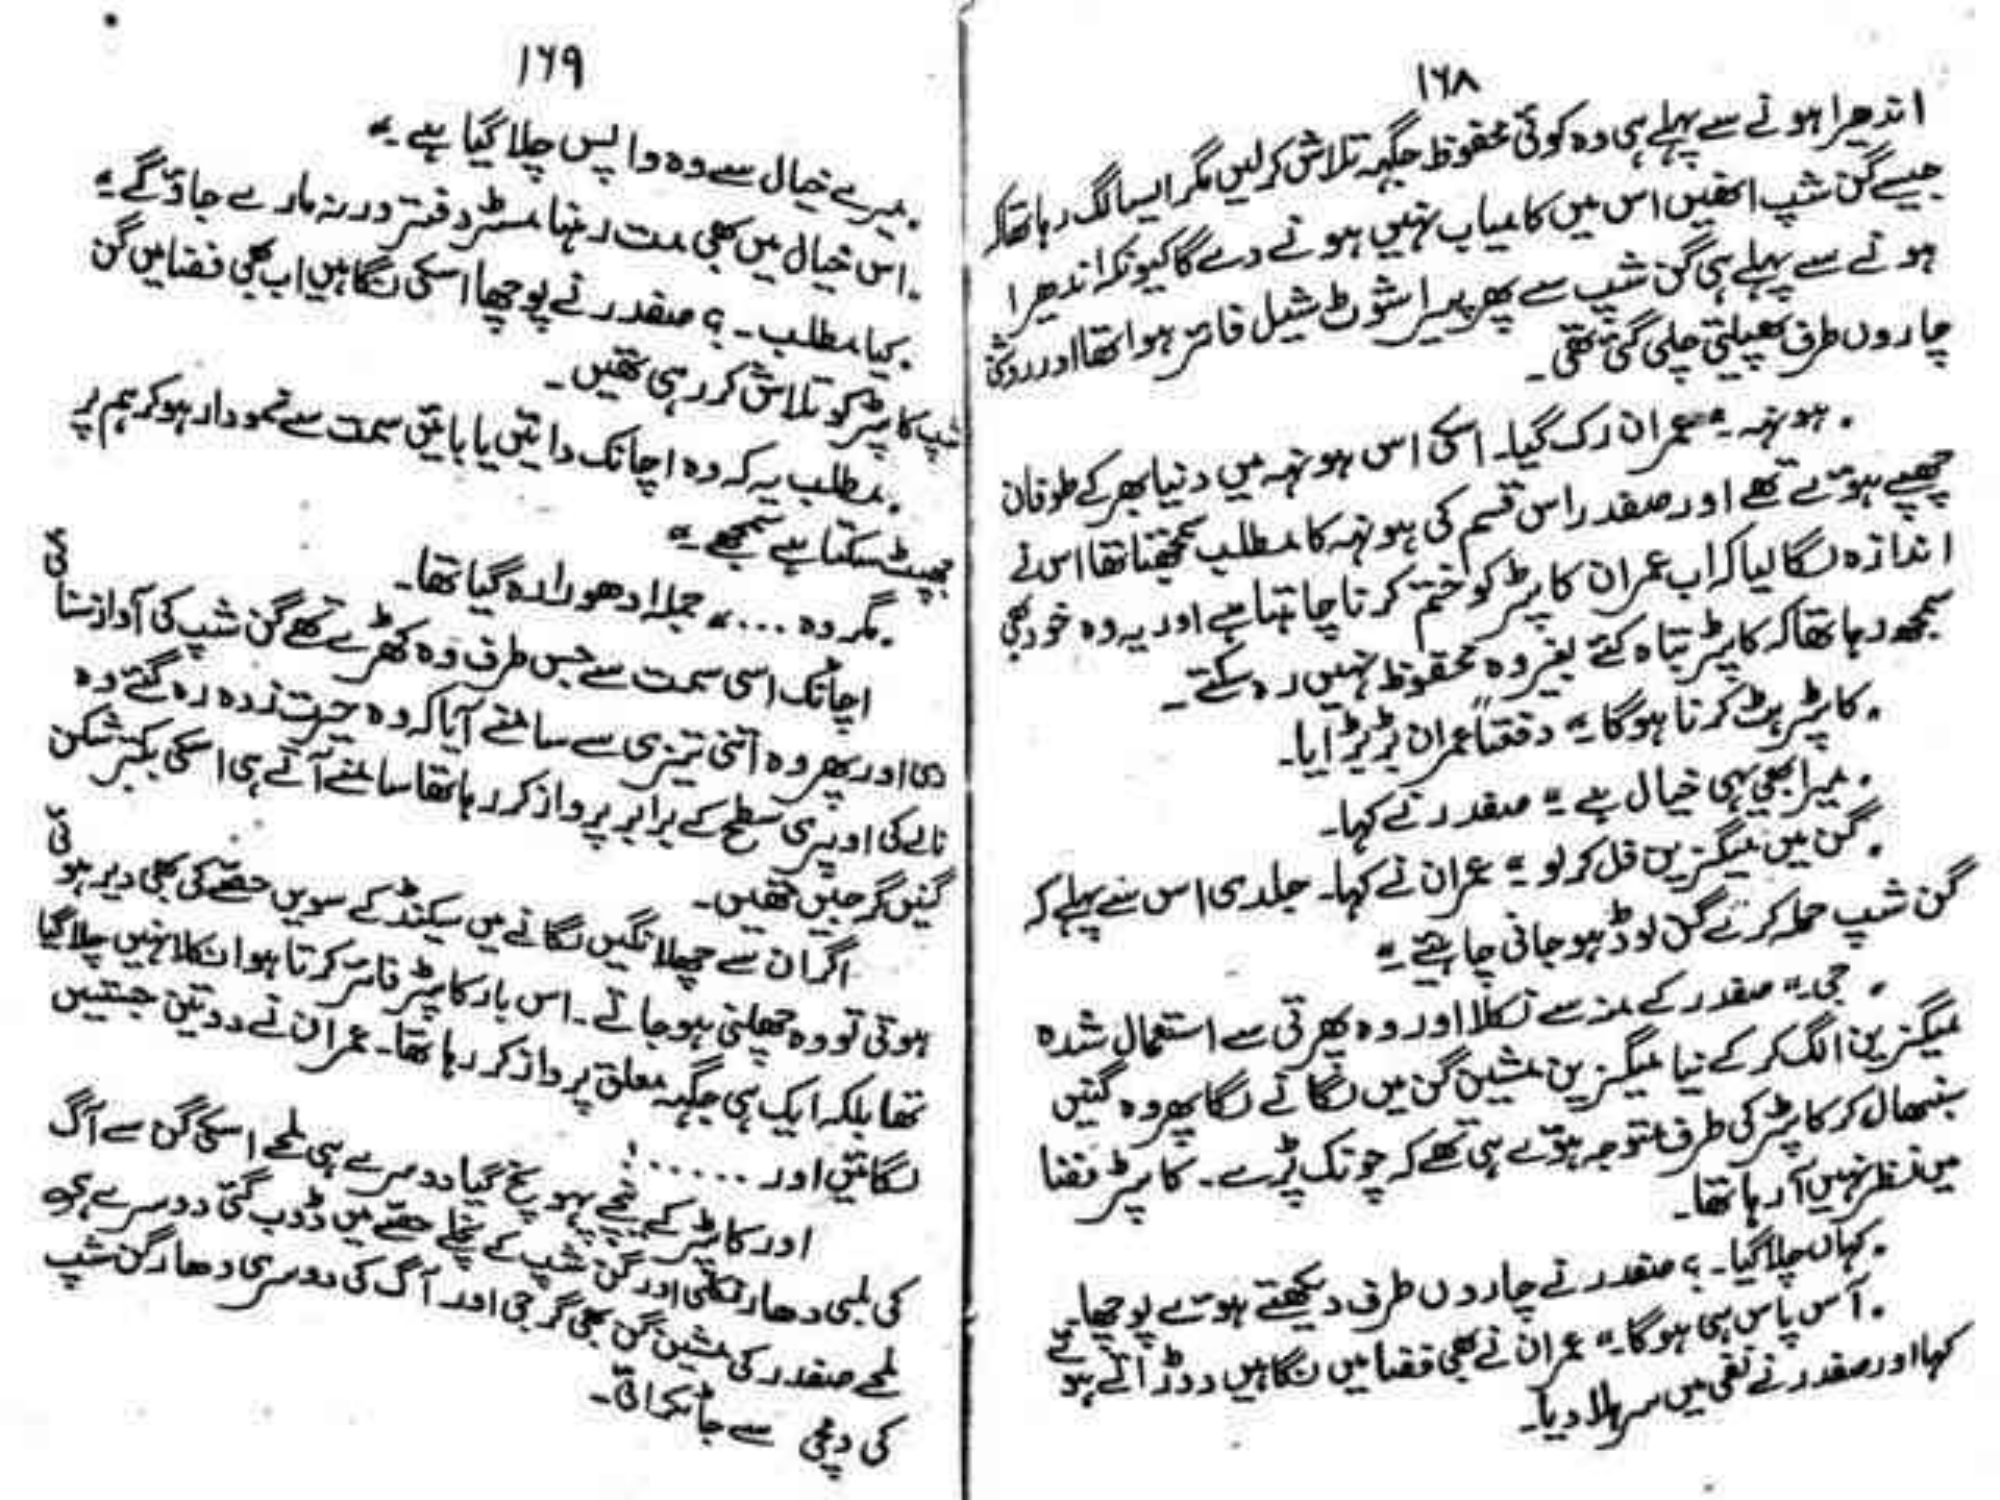 ۱۶۸
اندھیرا ہونے سے پہلے ہی وہ کوئی محفوظ جگہہ تلاش کر لیں مگر ایسا لگ رہا تھا کہ
جیسے گن شپ انھیں اس میں کامیاب نہیں ہونے دے گا کیونکہ اندھیرا
ہونے سے پہلے ہی گن شپ سے پھر پیراشوٹ شیل فائر ہوا تھا اور روشنی
چاروں طرف پھیلتی چلی گئی تھی۔
"ہونہہ۔" عمران رک گیا۔ اسکی اس ہونہہ میں دنیا بھر کے طوفان
چھپے ہوئے تھے اور صفدر اس قسم کی ہونہہ کا مطلب سمجھتا تھا اس نے
اندازہ لگا لیا کہ اب عمران کاپٹر کو ختم کرنا چاہتا ہے اور یہ وہ خود بھی
سمجھ رہا تھا کہ کاپٹر تباہ کئے بغیر وہ محفوظ نہیں رہ سکتے۔
"کاپٹر ہٹ کرنا ہوگا۔" دفعتاً عمران بڑبڑایا۔
"میرا بھی یہی خیال ہے۔" صفدر نے کہا۔
"گن میں میگزین فل کر لو۔" عمران نے کہا۔ جلدی اس سے پہلے کہ
گن شپ حملہ کرے گن لوڈ ہو جانی چاہیئے۔"
"جی۔" صفدر کے منہ سے نکلا اور وہ پھرتی سے استعمال شدہ
میگزین الگ کر کے نیا میگزین مشین گن میں لگانے لگا پھر وہ گنیں
سنبھال کر کاپٹر کی طرف متوجہ ہوئے ہی تھے کہ چونک پڑے۔ کاپٹر فضا
میں نظر نہیں آ رہا تھا۔
"کہاں چلا گیا۔؟ صفدر نے چاروں طرف دیکھتے ہوئے پوچھا۔
"آس پاس ہی ہوگا۔" عمران نے بھی فضا میں نگاہیں دوڑاتے ہوئے
کہا اور صفدر نے نفی میں سر ہلا دیا۔
۱۶۹
"میرے خیال سے وہ واپس چلا گیا ہے۔"
"اس خیال میں بھی مت رہنا مسٹر دفتر ورنہ مارے جاؤ گے۔"
"کیا مطلب۔؟ صفدر نے پوچھا اسکی نگاہیں اب بھی فضا میں گن
شپ کاپٹر کو تلاش کر رہی تھیں۔
"مطلب یہ کہ وہ اچانک دائیں یا بائیں سمت سے نمودار ہو کر ہم پر
جھپٹ سکتا ہے سمجھے۔"
"مگر وہ ...." جملہ ادھورا رہ گیا تھا۔
اچانک اسی سمت سے جس طرف وہ کھڑے تھے گن شپ کی آواز سنائی
دی اور پھر وہ اتنی تیزی سے سامنے آیا کہ وہ حیرت زدہ رہ گئے وہ
نالے کی اوپری سطح کے برابر پرواز کر رہا تھا سامنے آتے ہی اسکی بکتر شکن
گنیں گرجیں تھیں۔
اگر ان سے چھلانگیں لگانے میں سیکنڈ کے سویں حصے کی بھی دیر ہوئی
ہوتی تو وہ چھلنی ہو جاتے۔ اس بار کاپٹر فائر کرتا ہوا نکلا نہیں چلا گیا
تھا بلکہ ایک ہی جگہہ معلق پرواز کر رہا تھا۔ عمران نے دو تین جستیں
لگائیں اور ......
اور کاپٹر کے نیچے پہونچ گیا دوسرے ہی لمحے اسکی گن سے آگ
کی لمبی دھار نکلی اور گن شپ کے نچلے حصے میں ڈوب گئی دوسرے ہی
لمحے صفدر کی مشین گن بھی گرجی اور آگ کی دوسری دھار گن شپ
کی دمچی سے جا ٹکرائی۔